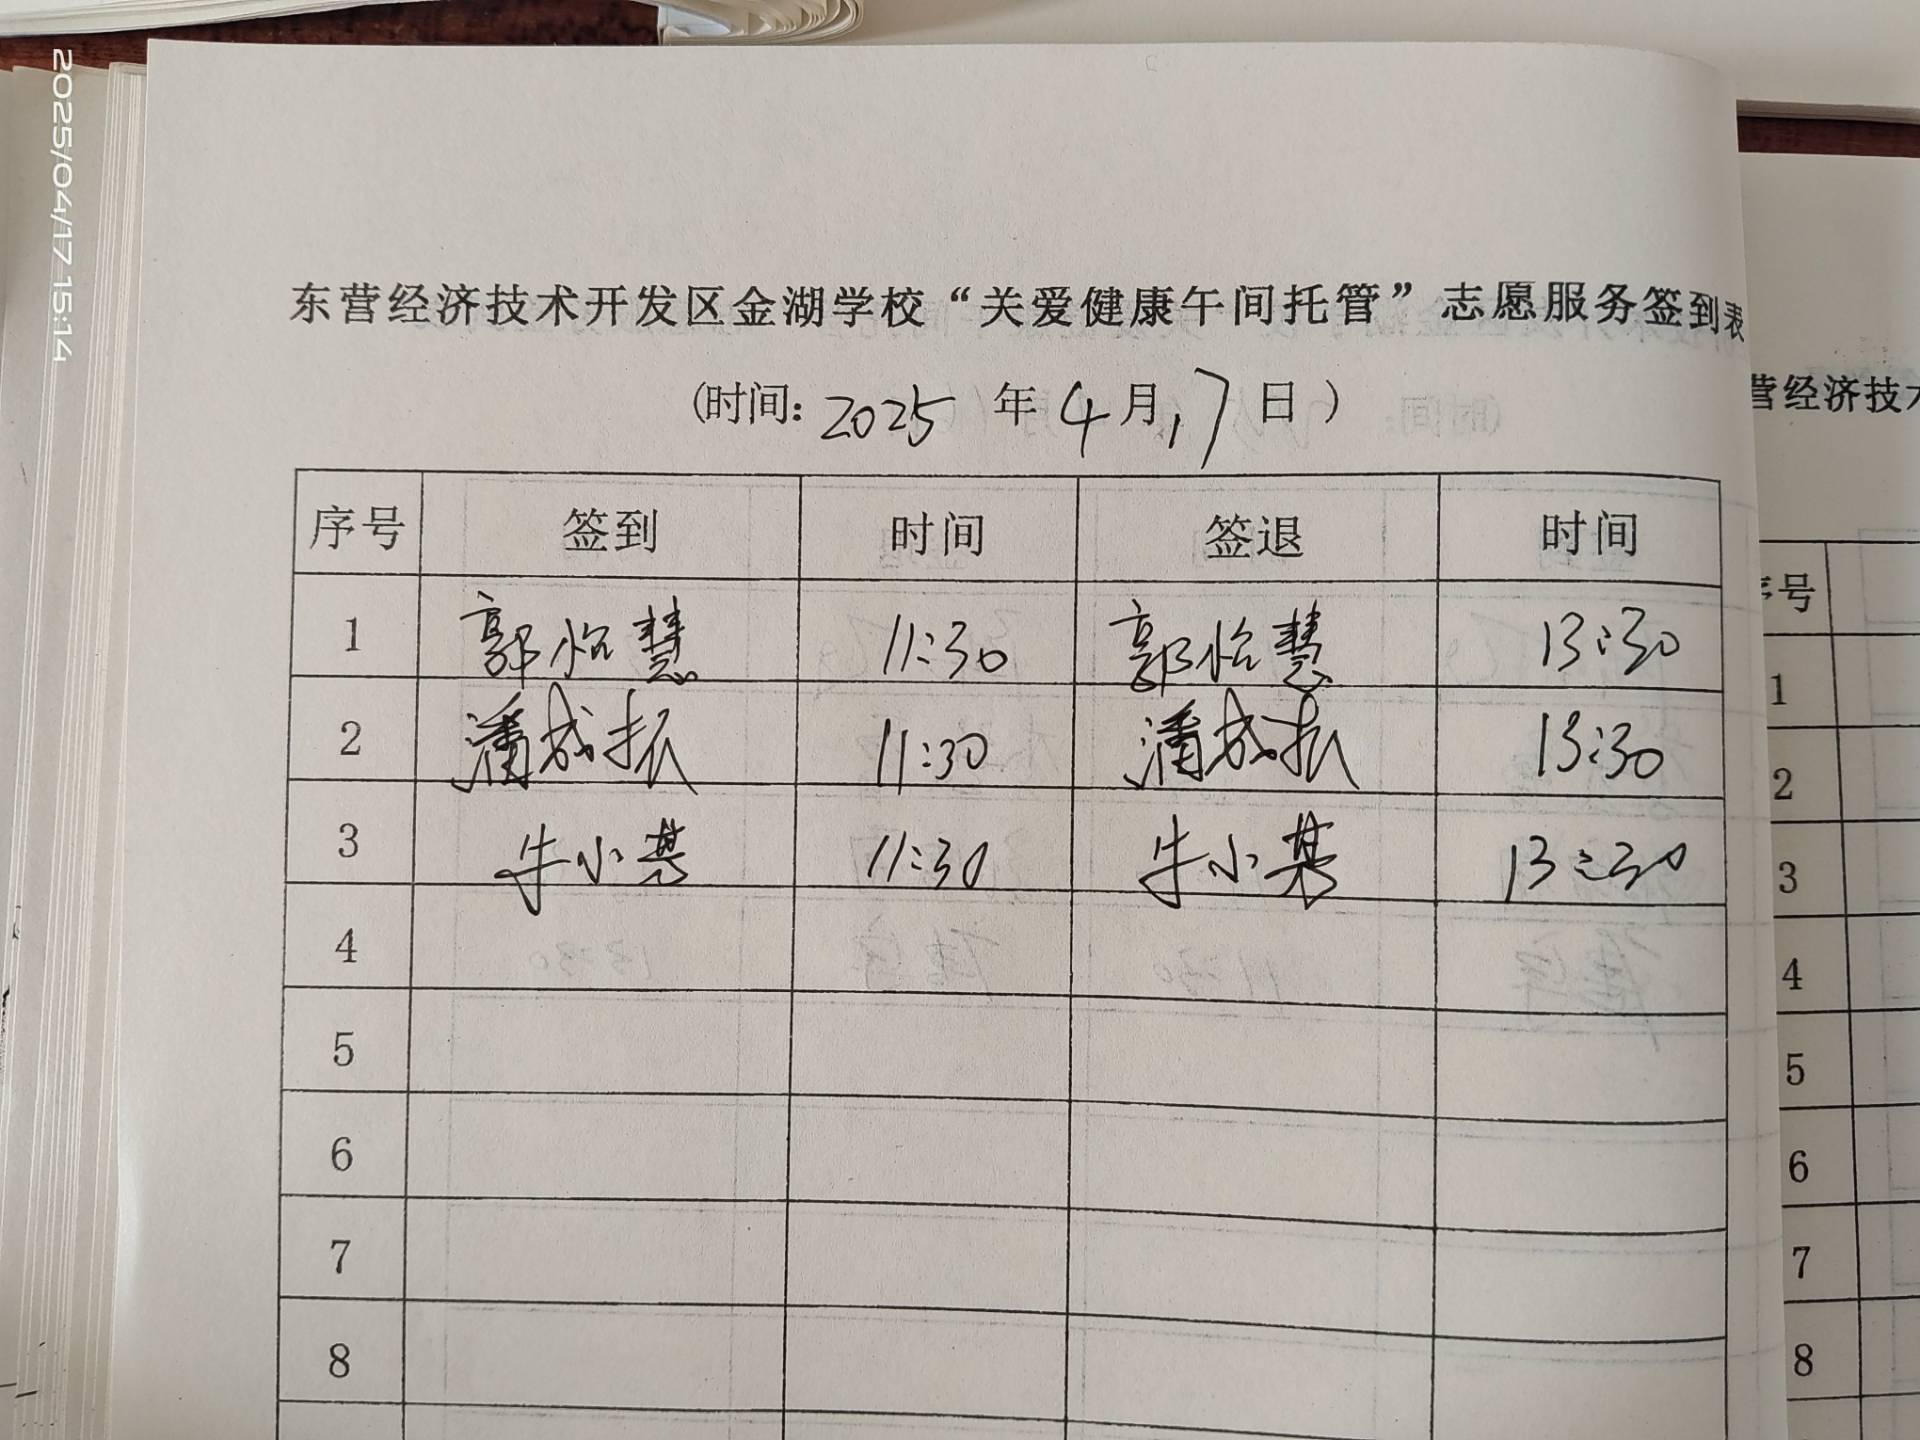 2025/04/17 15:14
东营经济技术开发区金湖学校“关爱健康午间托管”志愿服务签到表
(时间: 2025 年 4 月 17 日)
序号 签到 时间 签退 时间
1 郭怡慧 11:30 郭怡慧 13:30
2 潘成振 11:30 潘成振 13:30
3 牛小 11:30 牛小 13:30
4
5
6
7
8
营经济技
序号
1
2
3
4
5
6
7
8